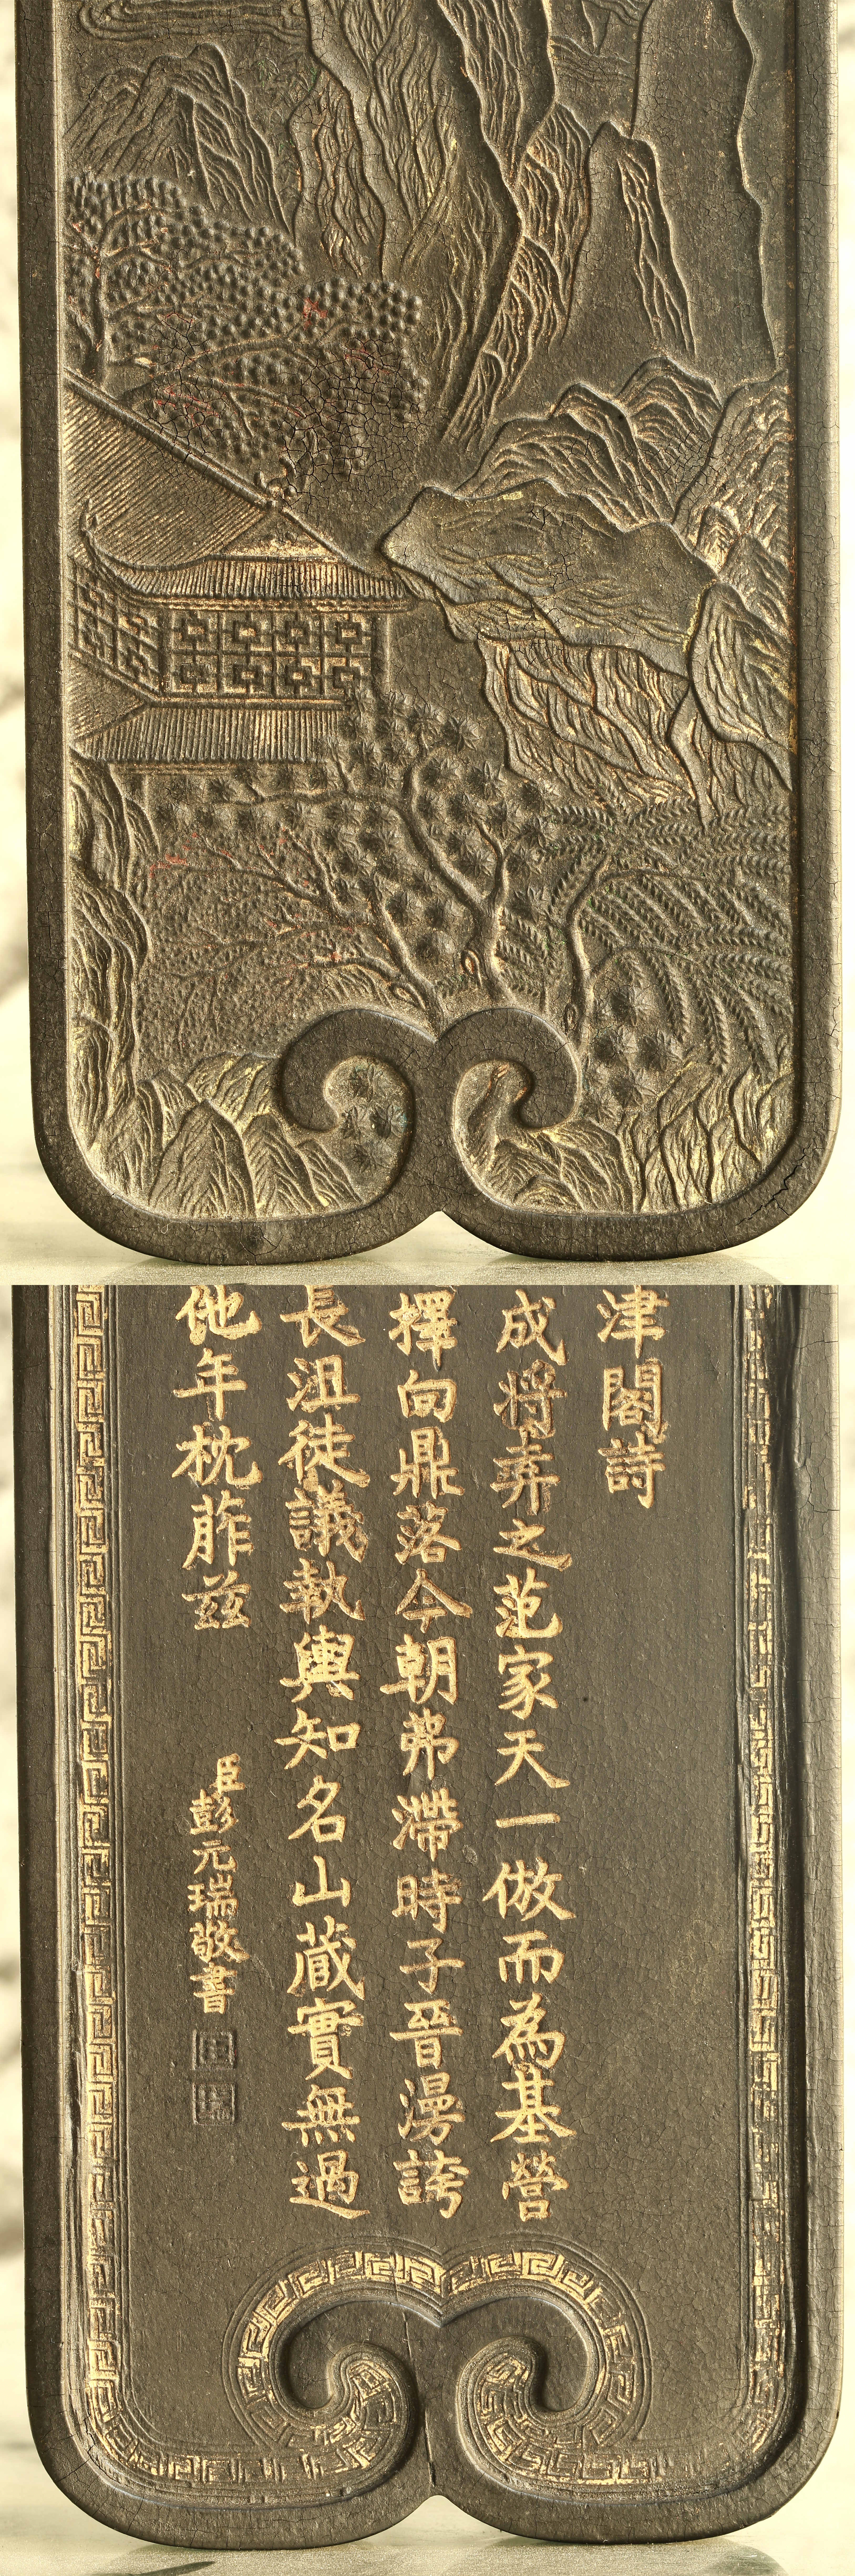 津閣詩
成将弆之范家天一倣而為基營
擇向鼎落今朝弗滯時子晉漫誇
長沮徒議執輿知名山蔵實無過
他年枕葄兹
臣彭元瑞敬書